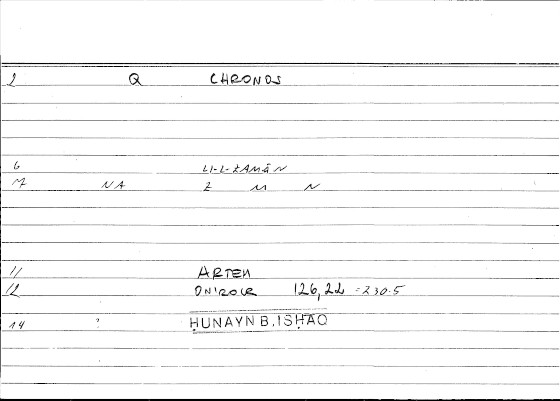 2 Q CHRONOS
6 LI-L-ZAMĀN
7 NA Z M N
11 ARTEM
12 ONIROCR 126,22 =230.5
14 ? ḤUNAYN B. ISḤAQ